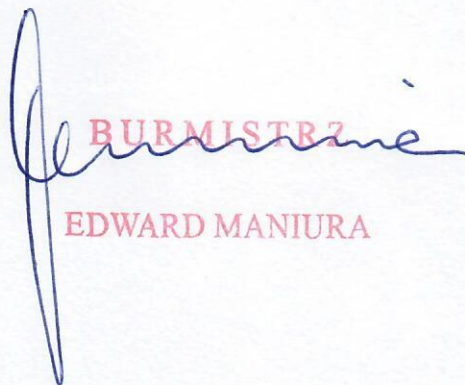 BURMISTRZ
EDWARD MANIURA